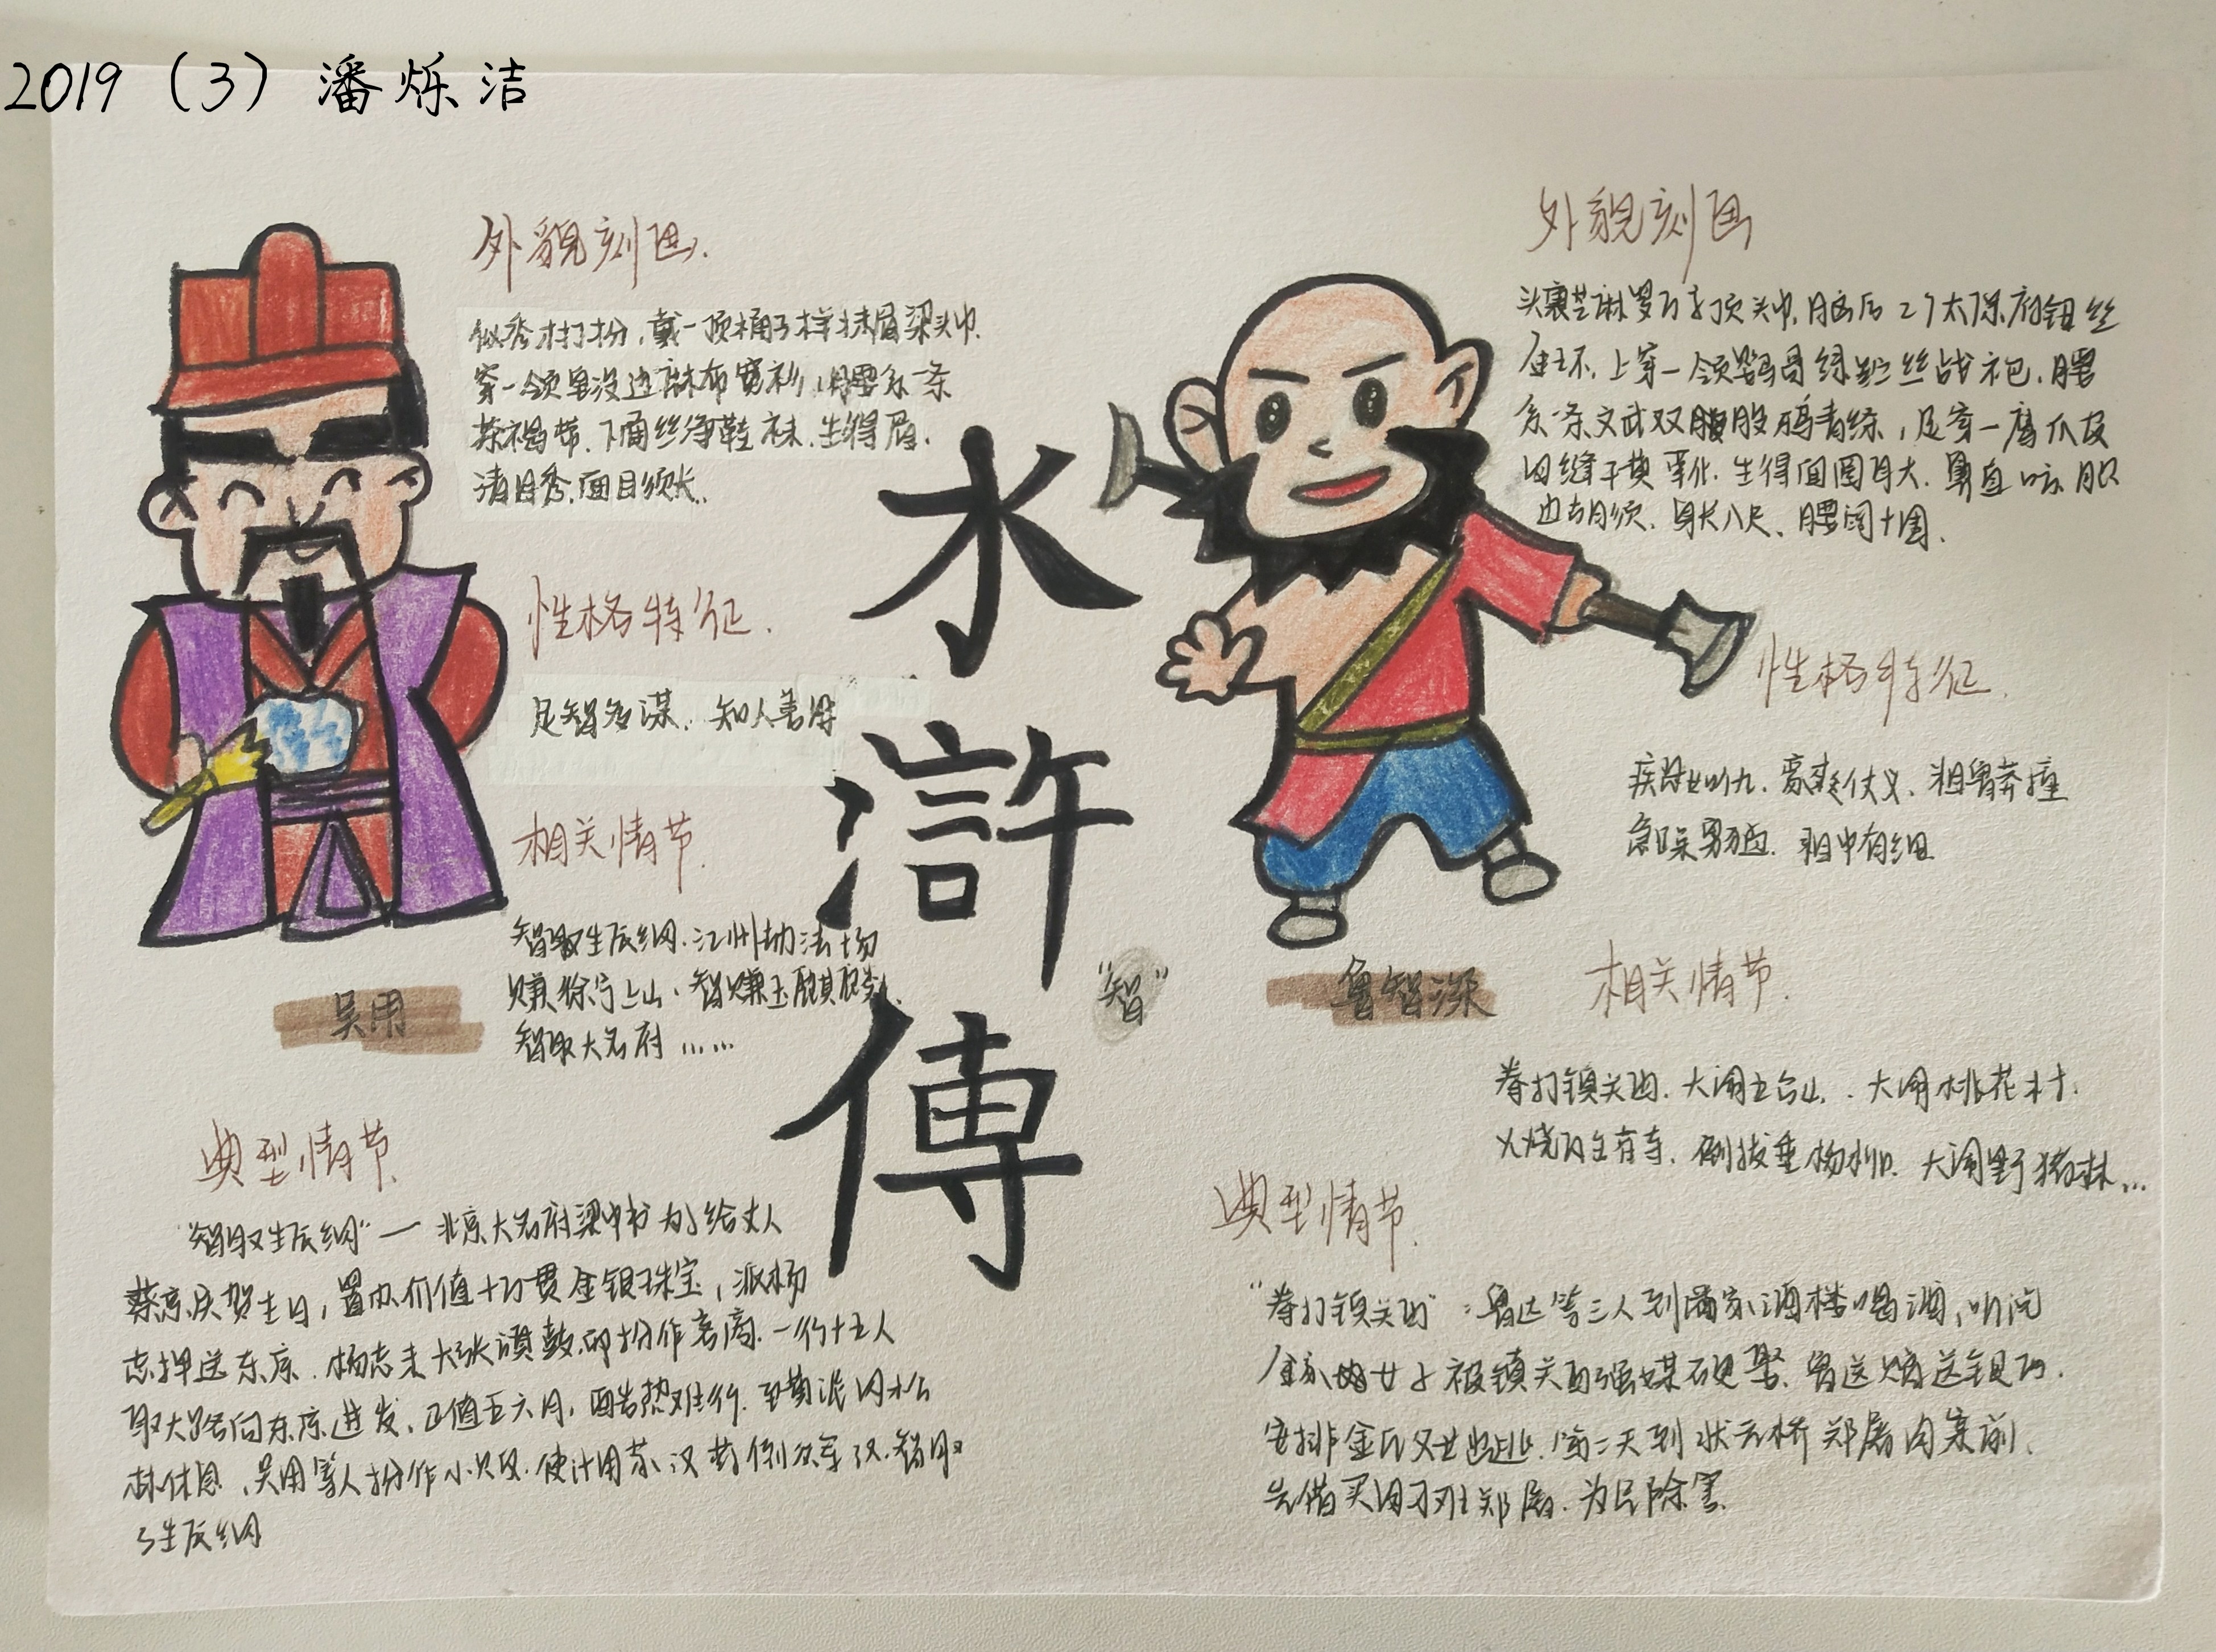 2019（3）潘烁洁
外貌刻画.
似秀才打扮，戴一顶桶子样抹眉梁头巾.
穿一领皂沿边麻布宽衫，腰系一条
茶褐带.下面丝净鞋袜.生得眉.
清目秀.面白须长.
性格特征.
足智多谋. 知人善用
相关情节.
智取生辰纲.江州劫法场
赚徐宁上山.智赚玉麒麟.
智取大名府……
吴用
典型情节.
“智取生辰纲”— 北京大名府梁中书为给丈人
蔡京庆贺生日，置办价值十万贯金银珠宝，派杨
志押送东京.杨志未大张旗鼓.却扮作客商.一行十五人
取大路向东京进发，正值五六月，酷热难行.至黄泥冈松
林休息，吴用等人扮作小贩.使计用蒙汉药倒众军汉.智取
了生辰纲
水
滸
傳
“智”
外貌刻画
头裹芝麻罗万字顶头巾.脑后2个太原府钮丝
金环.上穿一领鹦哥绿丝战袍.腰
系一条文武双股鸦青绦，足穿一鹰爪皮
四缝干黄靴.生得面圆耳大.鼻直口方.腮
边胡须.身长八尺、腰阔十围.
性格特征.
疾恶如仇.豪爽仗义.粗鲁莽撞
急躁勇猛.粗中有细
鲁智深
相关情节.
拳打镇关西.大闹五台山.. 大闹桃花村.
火烧瓦官寺.倒拔垂杨柳.大闹野猪林…
典型情节.
“拳打镇关西”：鲁达等三人到潘家酒楼喝酒，听说
金家女子被镇关西强媒硬娶.鲁达赠送银两.
安排金氏父女逃.第二天到状元桥郑屠肉案前.
先借买肉刁难郑屠.为民除害.